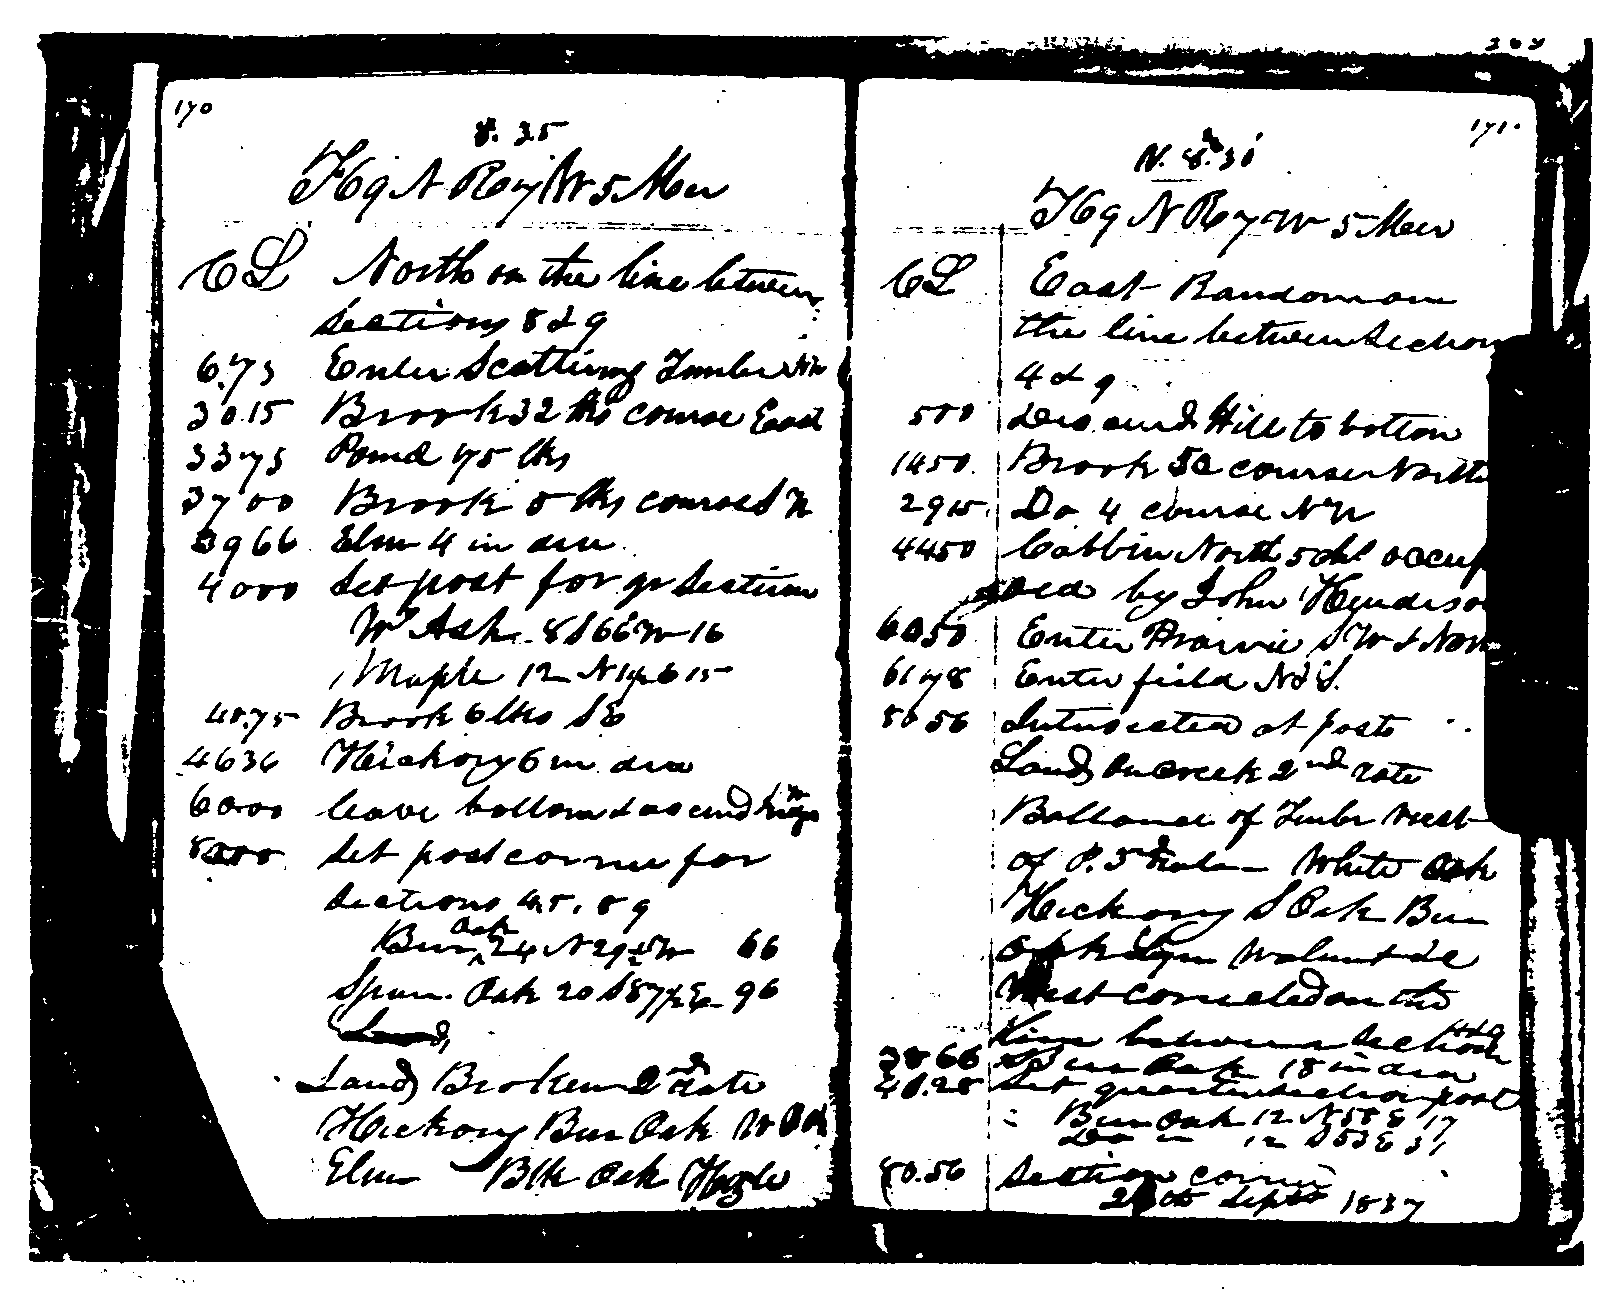 170
8. 35
T69 N R 07 W 5 Mer
C L North on the line between
Sections 8 & 9
6.73 Enter Scattering Timber
30.15 Brook 32 lks course East
3373 Pond 75 lks
3700 Brook 5 lks course
3966 Elm 4 in dia
4000 Set post for qr Section
W Ash 8 S66W 16
Maple 12
40.75 Brook 6 lks SE
4636 Hickory 6 in dia
6000 leave bottom & ascend
8000 Set post corner for
Sections 4, 5, 8, 9
Burr Oak 24 66
Span. Oak 20 96
Land Broken 2nd Rate
Hickory Burr Oak W Oak
Elm Blk Oak Hazle
171
T69 N R 07 W 5 Mer
C L East Random on
the line between Section
4 & 9
500 Descend Hill to bottom
1450 Brook 50 course North
2915 Do 4 course NW
4450 Cabbin North 5 chs occup
ied by John Henderso
6050 Enter Prairie
6178 Enter field N & S.
80.56 Intersected at post
Land on Creek 2nd rate
Ballance of Timber West
of P. 3d Rate White Oak
Hickory S Oak Burr
oak Lynn Walnut &c
West corrected on the
line between Sections 4 & 9
38.66 Burr Oak 18 in dia
40.28 Set quarter section post
Burr Oak 12 N58E 17
Do 12 S53E 31
80.56 Section corner
Sept 1837